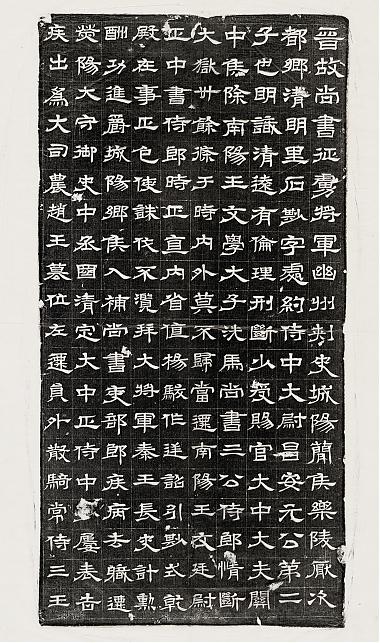 晉故尚書征虜將軍幽州刺史城陽簡侯樂陵厭次
都鄉清明里石尠字處約侍中大尉昌安元公第二
子也明識清遠有倫理刑斷少受賜官大中大夫關
中侯除南陽王文學大子洗馬尚書三公侍郎情斷
大獄卅餘條于時內外莫不歸當遷南陽王文廷尉
正中書侍郎時正直內省值楊駿作逆詔引尠式乾
殿在事正色使誅伐不濫拜大將軍秦王長史計勳
酬功進爵城陽鄉侯入補尚書吏部郎疾病去職遷
滎陽大守御史中丞國清定大中正侍中屢表告
疾出為大司農趙王篡位左遷員外散騎常侍三王